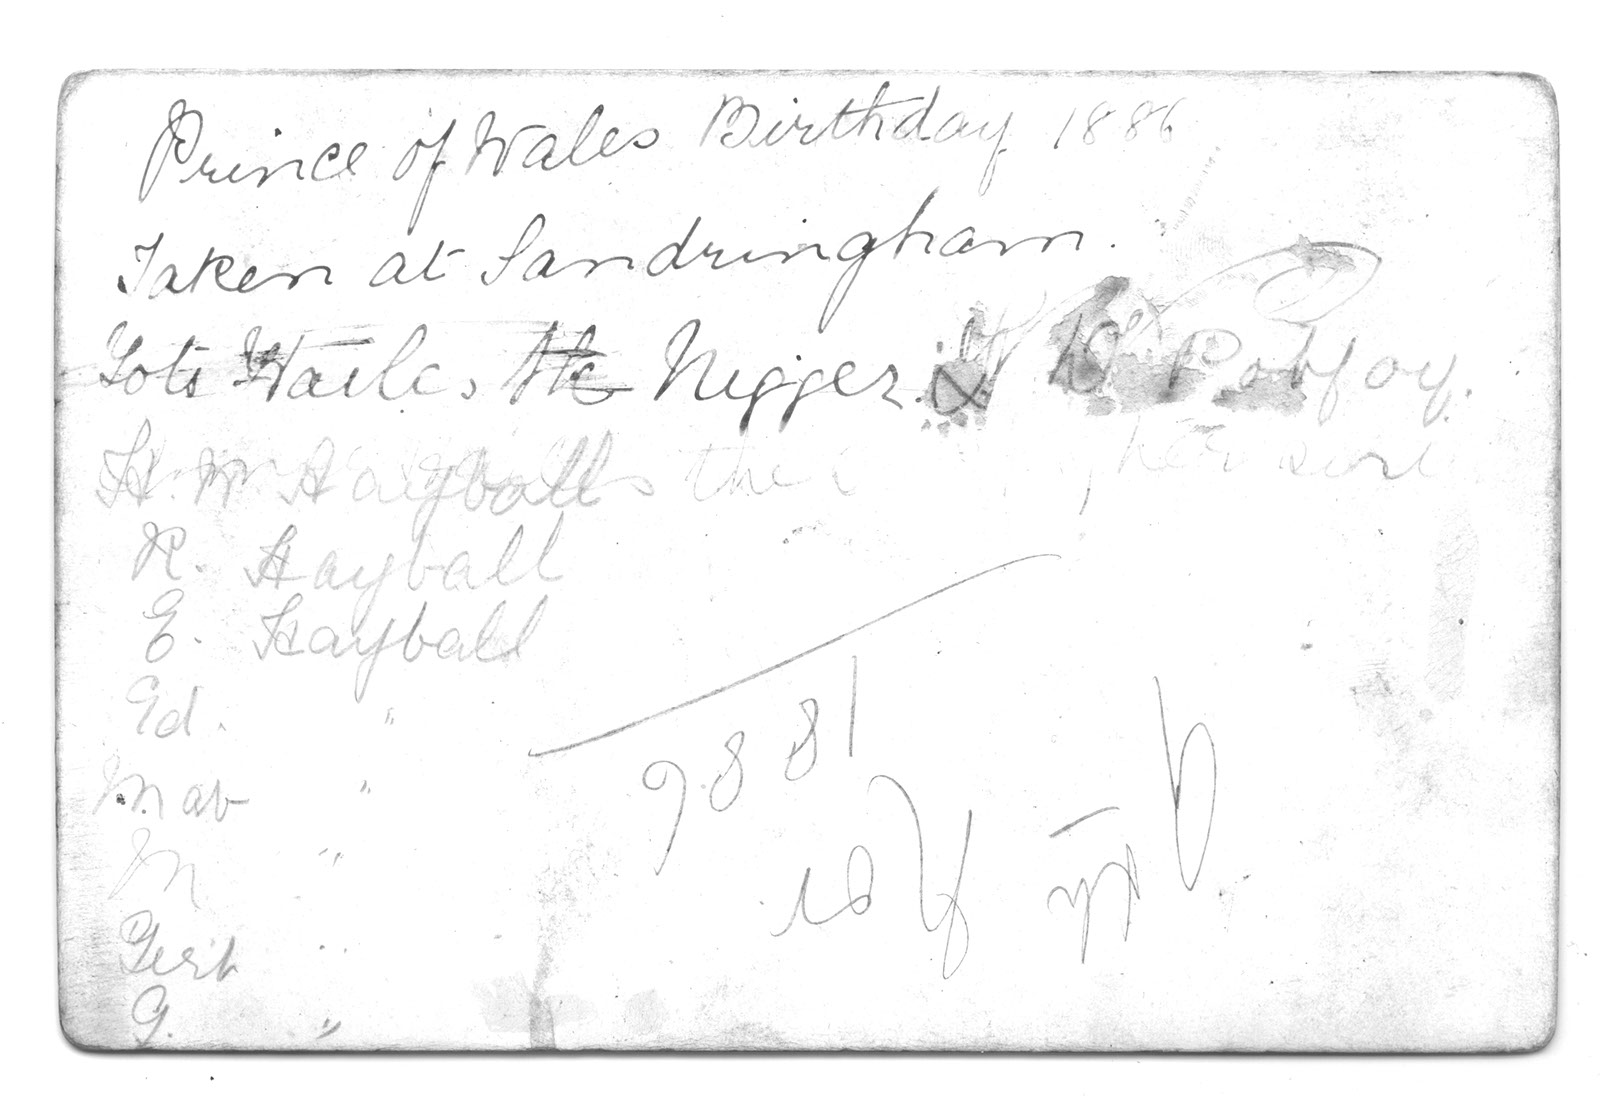 Prince of Wales Birthday 1886
Taken at Sandringham.
Lots Wailes, the Nigger. & W Potifoy.
H. W. Hayballs the her
R. Hayball
E. Hayball
Ed. "
Mab "
M "
Gert "
G. "
1886
9th Nov